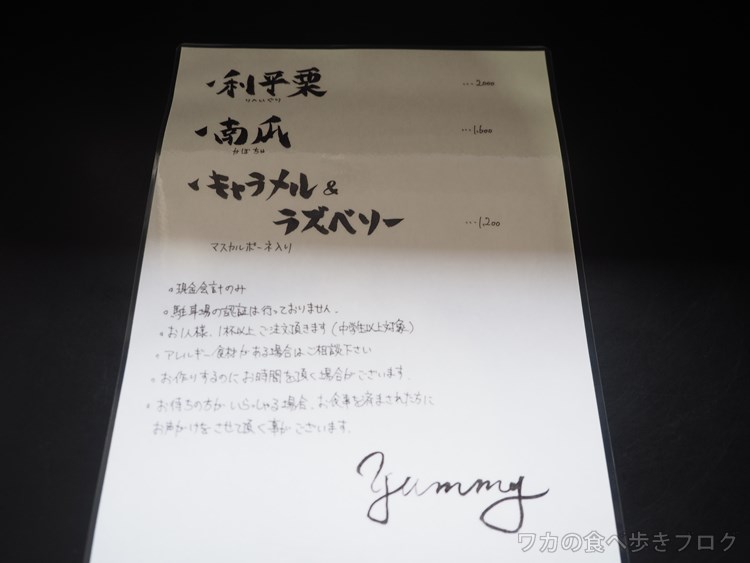 ・利平栗 …2,000
りへいぐり
・南瓜 …1,600
かぼちゃ
・キャラメル &
ラズベリー …1,200
マスカルポーネ入り
。現金会計のみ
。駐車場の認証は行っておりません。
。お1人様、1杯以上ご注文頂きます(中学生以上対象)
。アレルギー食材がある場合はご相談下さい
。お作りするのにお時間を頂く場合がございます。
。お待ちの方がいらっしゃる場合、お食事を済まされた方に
お声がけをさせて頂く事がございます。
yummy
ワカの食べ歩きブログ